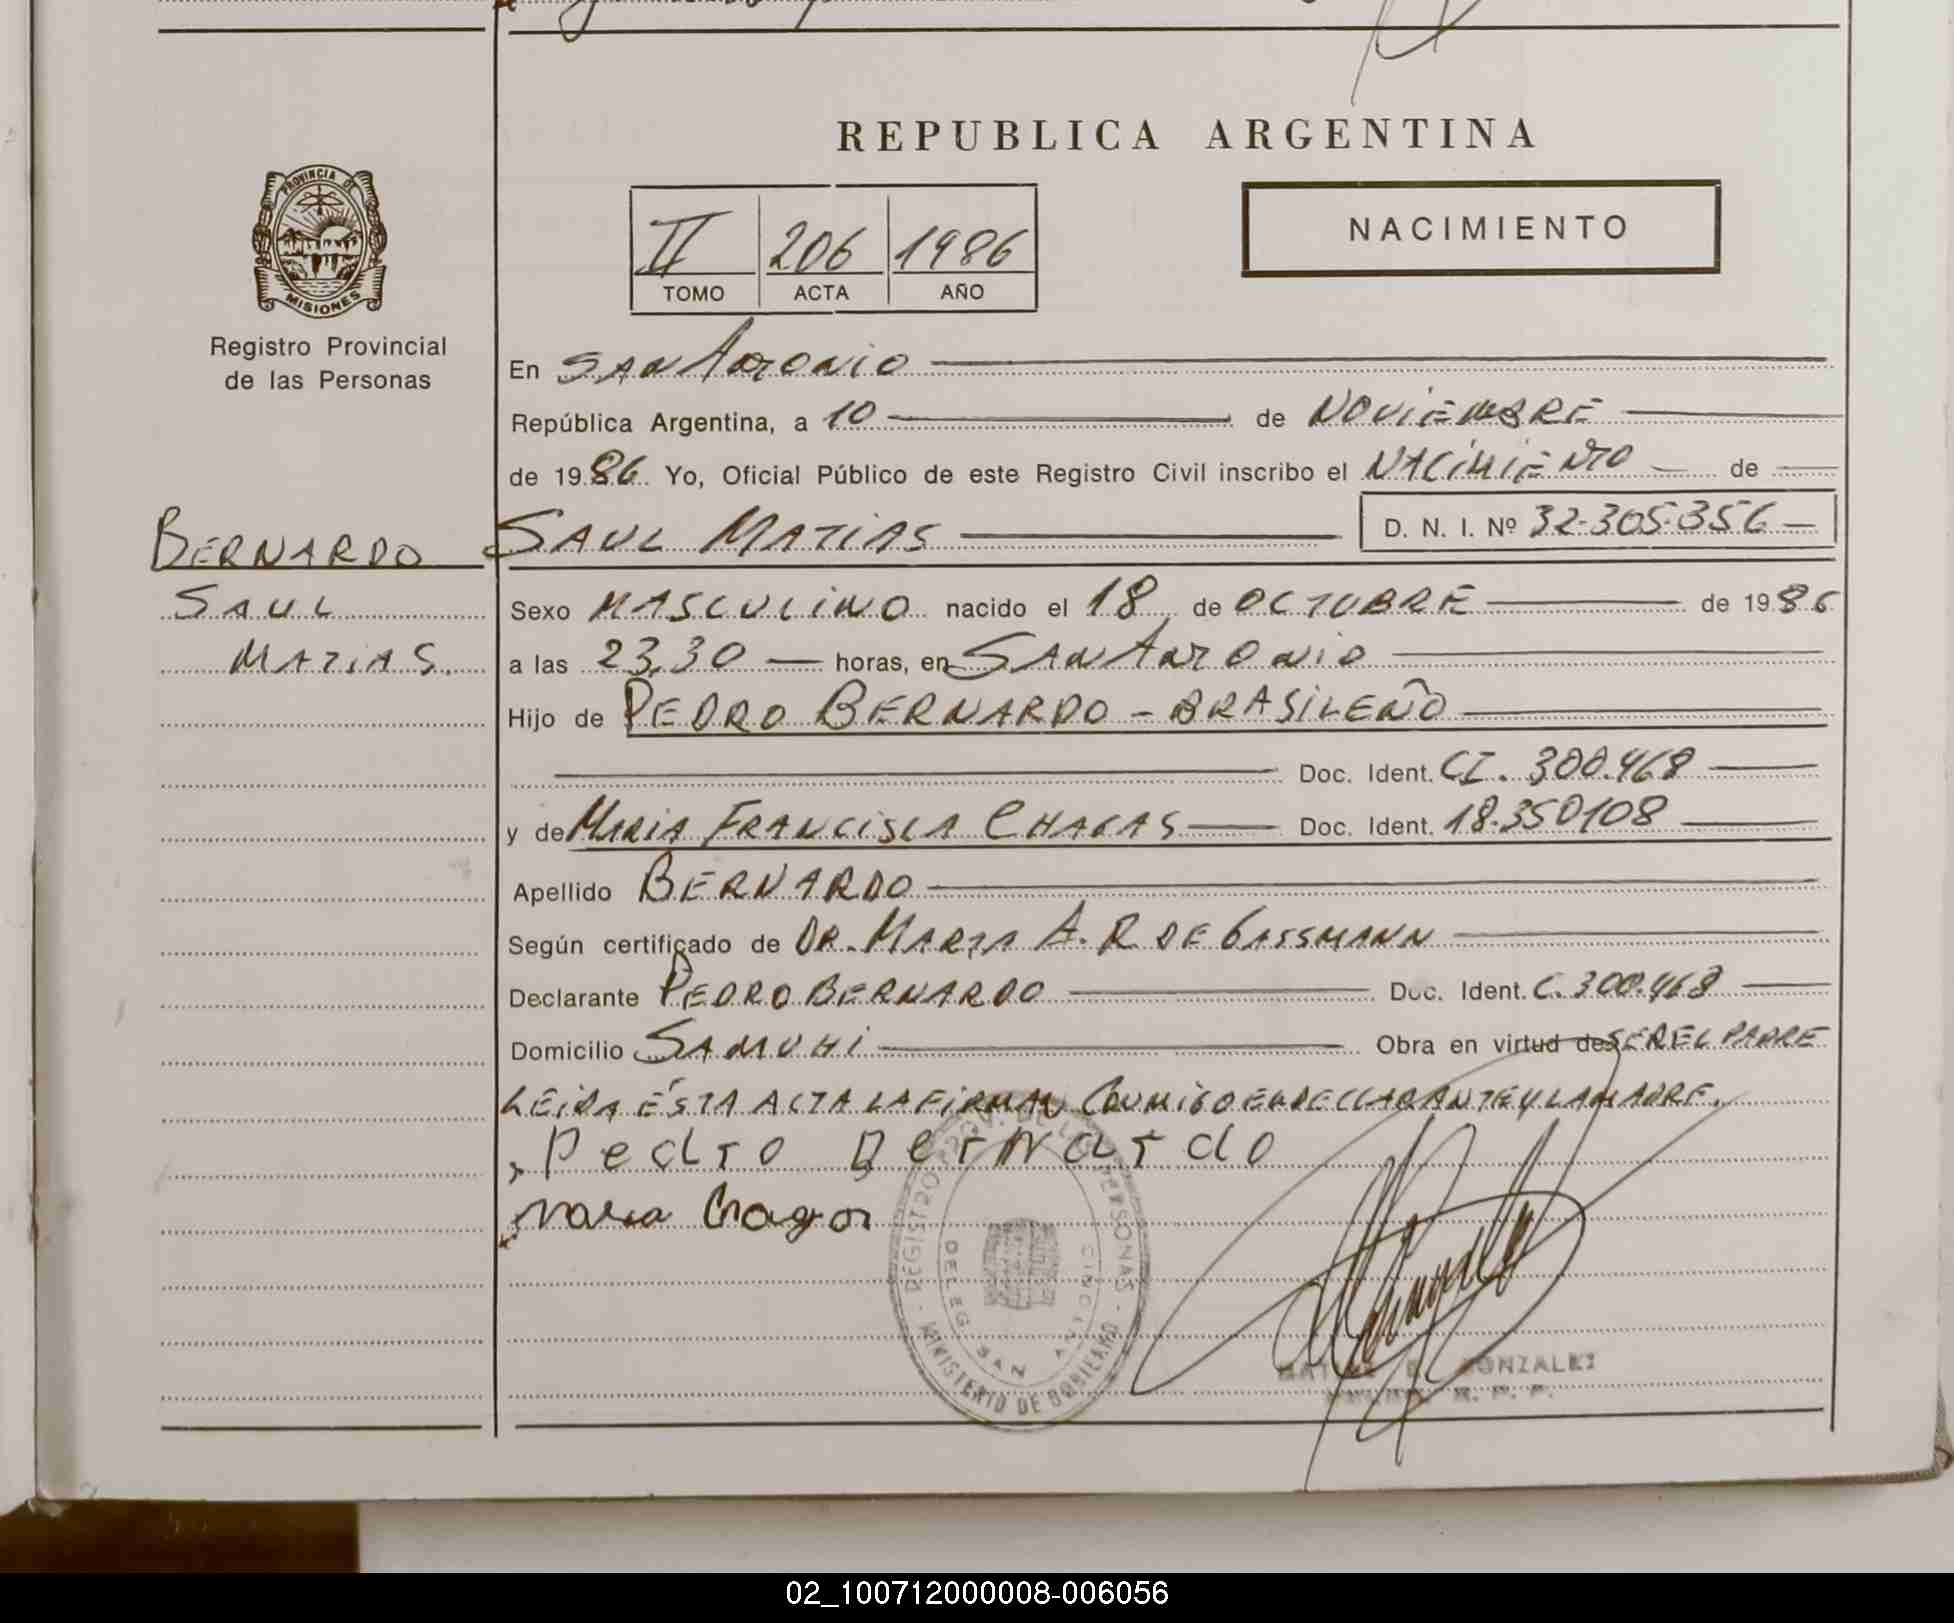 REPUBLICA ARGENTINA
PROVINCIA DE
MISIONES
Registro Provincial
de las Personas
II 206 1986
TOMO ACTA AÑO
NACIMIENTO
En SAN ANTONIO
República Argentina, a 10 de NOVIEMBRE
de 1986 Yo, Oficial Público de este Registro Civil inscribo el NACIMIENTO de
BERNARDO
SAUL
MATIAS
SAUL MATIAS D. N. I. Nº 32.305.356
Sexo MASCULINO nacido el 18 de OCTUBRE de 1986
a las 23.30 horas, en SAN ANTONIO
Hijo de PEDRO BERNARDO - BRASILEÑO
Doc. Ident. CI. 300.468
y de MARIA FRANCISCA CHAGAS Doc. Ident. 18.350108
Apellido BERNARDO
Según certificado de DR. MARTA A. R DE GASSMANN
Declarante PEDRO BERNARDO Doc. Ident. C. 300.468
Domicilio SAMUHI Obra en virtud de SER EL PADRE
LEIDA ÉSTA ACTA LA FIRMAN CONMIGO EL DECLARANTE Y LA MADRE.
Pedro Bernardo
Maria Chagas
REGISTRO PROV. DE LAS PERSONAS
DELEG. SAN ANTONIO
MINISTERIO DE GOBIERNO
GONZALEZ
R. P. P.
02_100712000008-006056